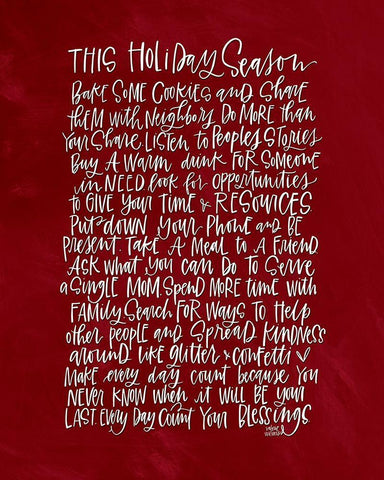 THIS HOLIDAY SEASON
BAKE SOME COOKIES AND SHARE
THEM WITH NEIGHBORS. DO MORE THAN
YOUR SHARE. LISTEN TO PEOPLES STORIES
BUY A WARM drink FOR SOMEONE
in NEED. look for OPPORTUNITIES
to GIVE YOUR TIME & RESOURCES.
PUT DOWN YOUR PHONE AND BE
PRESENT. TAKE A MEAL TO A FRIEND.
ASK WHAT YOU CAN DO TO SERVE
a SINGLE MOM. SPEND MORE TIME WITH
FAMILY. SEARCH FOR WAYS TO HELP
other people AND SPREAD KINDNESS
around LIKE glitter & CONFETTI ♡
MAKE every day COUNT because YOU
NEVER KNOW when it WILL BE YOUR
LAST. EVERY DAY COUNT YOUR BLESSINGS.